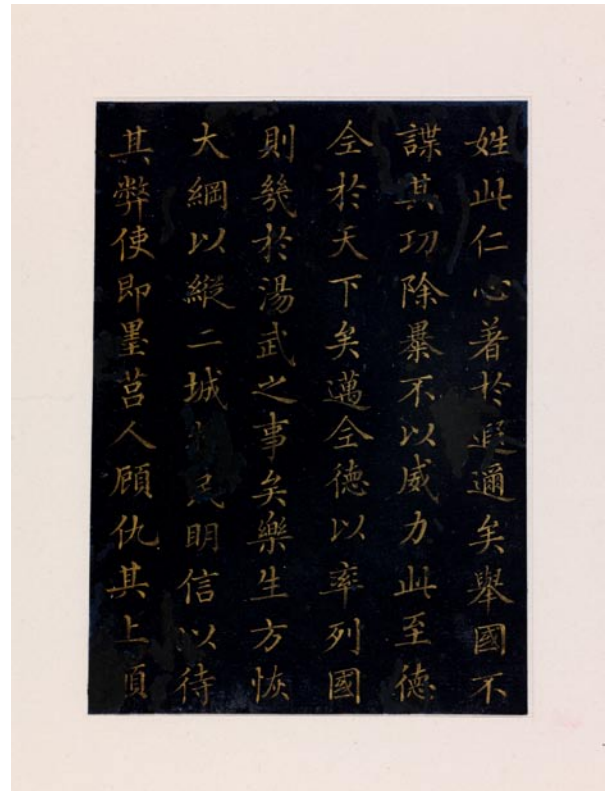 姓此仁心著於遐邇矣舉國不
謀其功除暴不以威力此至德
全於天下矣邁全德以率列國
則幾於湯武之事矣樂生方恢
大綱以縱二城民明信以待
其弊使即墨莒人顧仇其上